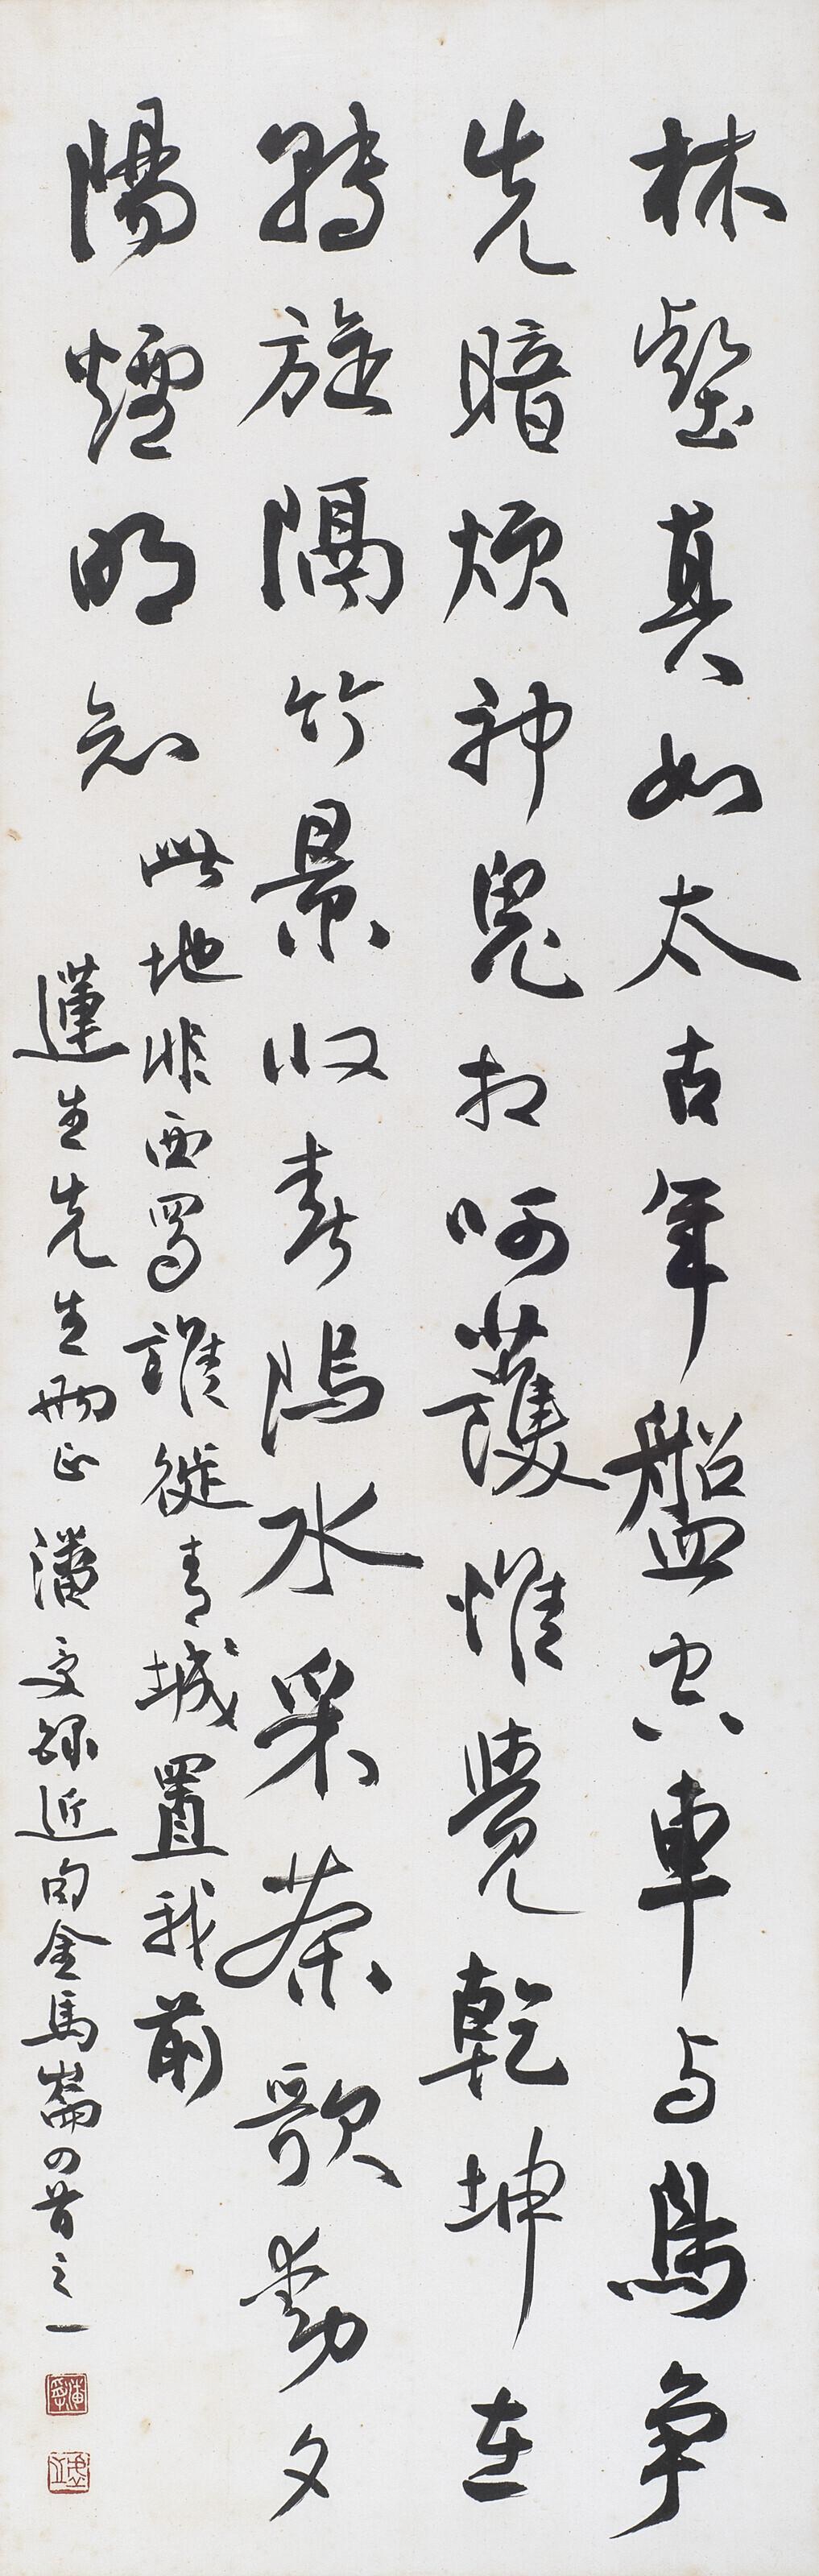 林壑真如太古年盤空車与鳥争
先暗煩神鬼相呵護惟覺乾坤在
轉旋隔竹景收春隖水采茶歌動夕
陽煙明知此地非西蜀誰徙青城置我前
蓮生先生刪正 潘受録近句金馬崙四首之一